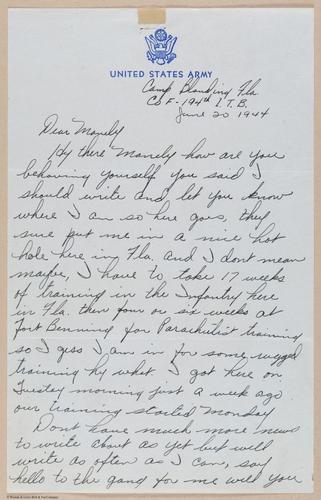 UNITED STATES ARMY
Camp Blanding Fla
Co F - 194th I.T.B.
June 20 1944
Dear Manely
Hy there Manely how are you
behaving yourself you said I
should write and let you know
where I am so here goes, they
sure put me in a nice hot
hole here in Fla. and I dont mean
maybe, I have to take 17 weeks
of training in the Infantry here
in Fla. then four or six weeks at
Fort Benning for Parachutist training,
so I gess I am in for some rugged
training by what I got here on
Tuesday morning just a week ago
our training started Monday
Dont have much more news
to write about as yet but will
write as often as I can, say
hello to the gang for me will you